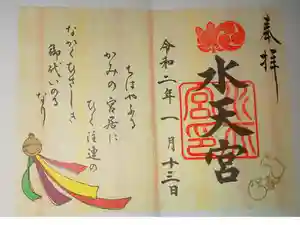 奉拝
水天宮
令和二年一月十三日
ちはやふる
かみの宮居に
ひく注連の
ながくひさしき
御代いのる
なり